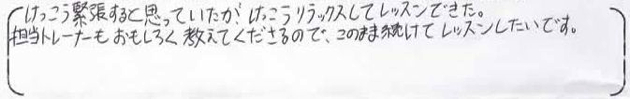 けっこう緊張すると思っていたが、けっこうリラックスしてレッスンできた。
担当トレーナーもおもしろく教えてくださるので、このまま続けてレッスンしたいです。